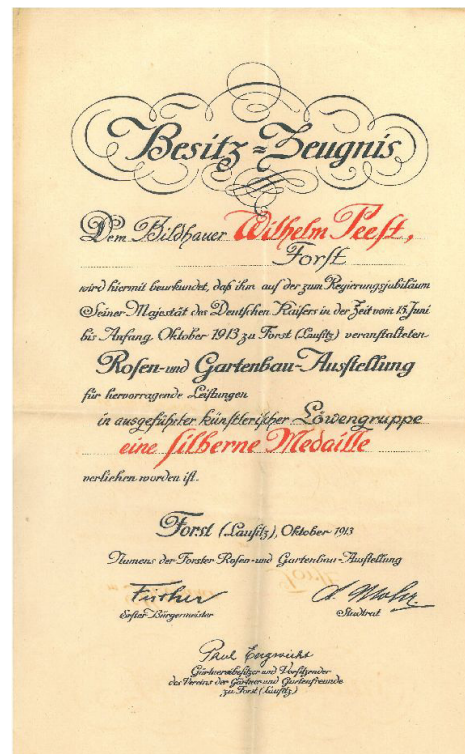 Besitz=Zeugnis
Dem Bildhauer Wilhelm Peest,
Forst
wird hiermit beurkundet, daß ihm auf der zum Regierungsjubiläum
Seiner Majestät des Deutschen Kaisers in der Zeit vom 15. Juni
bis Anfang Oktober 1913 zu Forst (Lausitz) veranstalteten
Rosen- und Gartenbau-Ausstellung
für hervorragende Leistungen
in ausgeführter künstlerischer Löwengruppe
eine silberne Medaille
verliehen worden ist.
Forst (Lausitz), Oktober 1913
Namens der Forster Rosen- und Gartenbau-Ausstellung
Erster Bürgermeister
Stadtrat
Paul
Gärtnereibesitzer und Vorsitzender
des Vereins der Gärtner und Gartenfreunde
zu Forst (Lausitz)